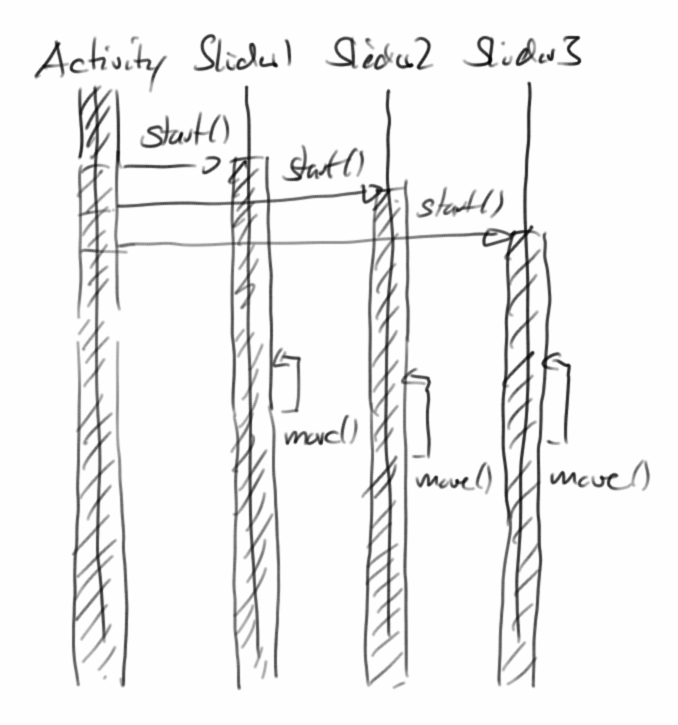 Activity Slider1 Slider2 Slider3
start()
start()
start()
move()
move()
move()